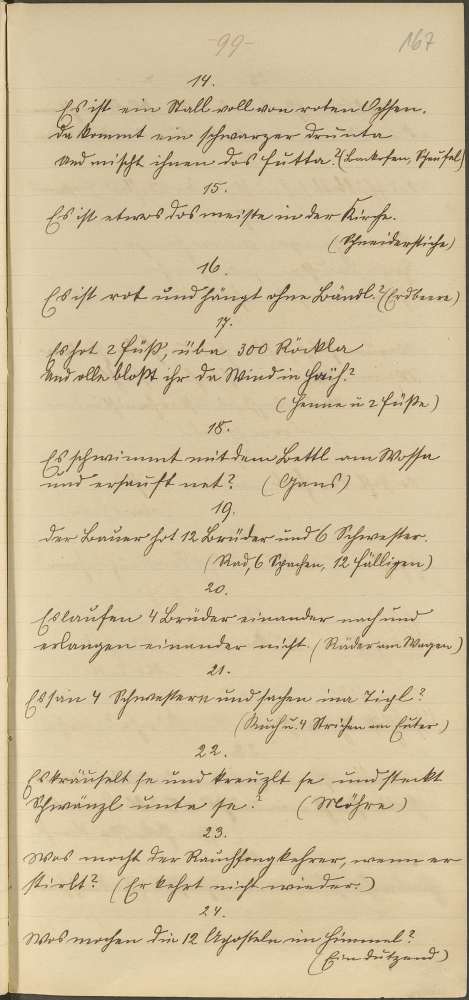 -99-
167
14.
Es ist ein Stall voll von roten Ochsen.
Da kommt ein schwarzer drunta
und mischt ihnen das Futta? (Backofen, Scheufel)
15.
Es ist etwas das meiste in der Kirche.
(Schneiderstiche)
16.
Es ist rot und hängt ohne Bändl.? (Erdbeere)
17.
Es hot 2 Füß, üba 300 Röckla
und olle bloßt ihr da Wind in
(Henne u 2 Füße)
18.
Es schwimmt mit dem Bettl am Wossa
und ersauft net? (Gans)
19.
Der Bauer hot 12 Brüder und 6 Schwester.
(Rad, 6 Spachen, 12 Fälligen)
20.
Es laufen 4 Brüder einander noch und
erlangen einander nicht. (Räder am Wagen)
21.
Es san 4 Schwestern und sachen ina Tigl?
(Kuh u. 4 Strichen am Euter)
22.
Es kräuselt se und kreuzlt se und steckt
Schwanzl unta se? (Möhre)
23.
Wos mocht der Rauchfongkehrer, wenn er
stirbt? (Er kehrt nicht wieder.)
24.
Wos mochen die 12 Aposteln im Himmel?
(Ein Dutzend)